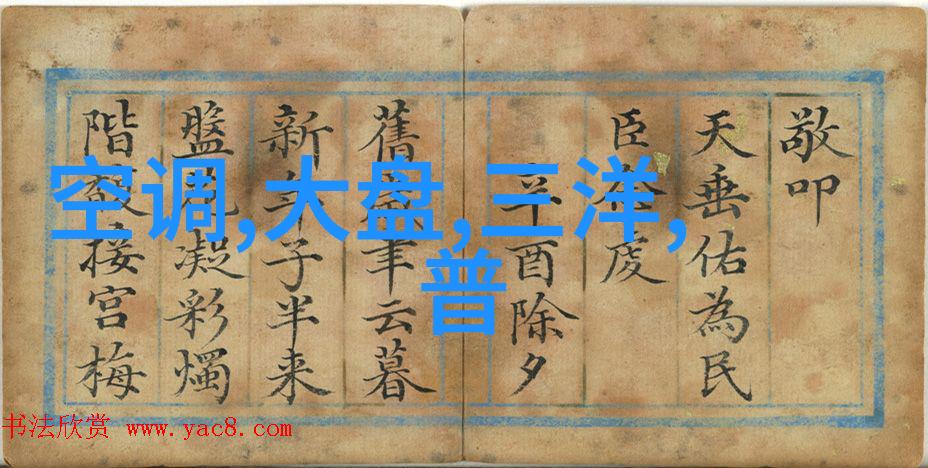 空调,大盘,三洋,
普
敬叩
天垂佑為民
臣虔
辛酉除夕
舊年云暮
新年子半来
盤花凝彩燭
階接宮梅
书法欣赏 www.yac8.com